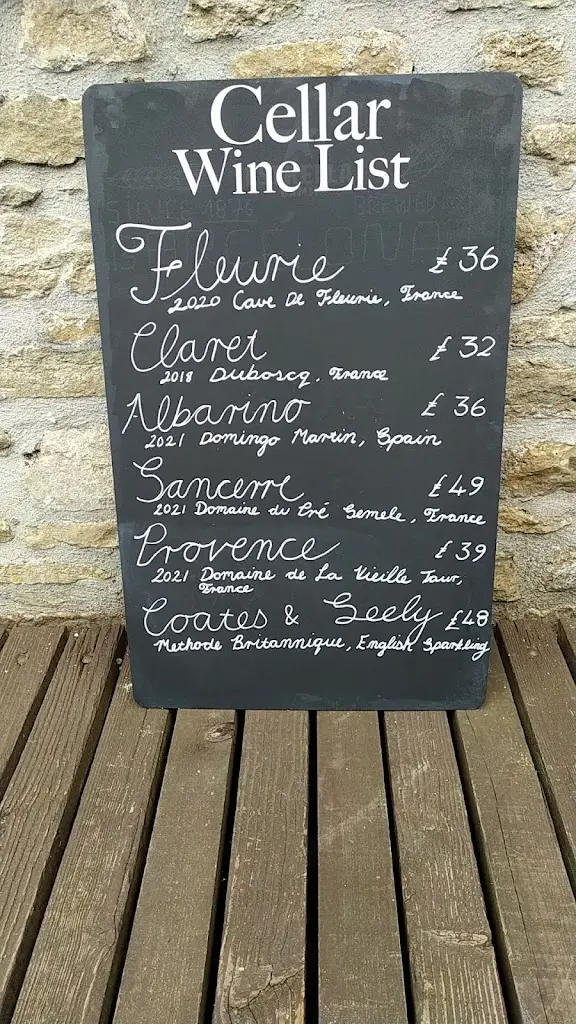 Cellar
Wine List
Fleurie £36
2020 Cave De Fleurie, France
Claret £32
2018 Duboscq, France
Albarino £36
2021 Domingo Martin, Spain
Sancerre £49
2021 Domaine du Pré Semele, France
Provence £39
2021 Domaine de La Vieille Tour,
France
Coates & Seely £48
Methode Britannique, English Sparkling